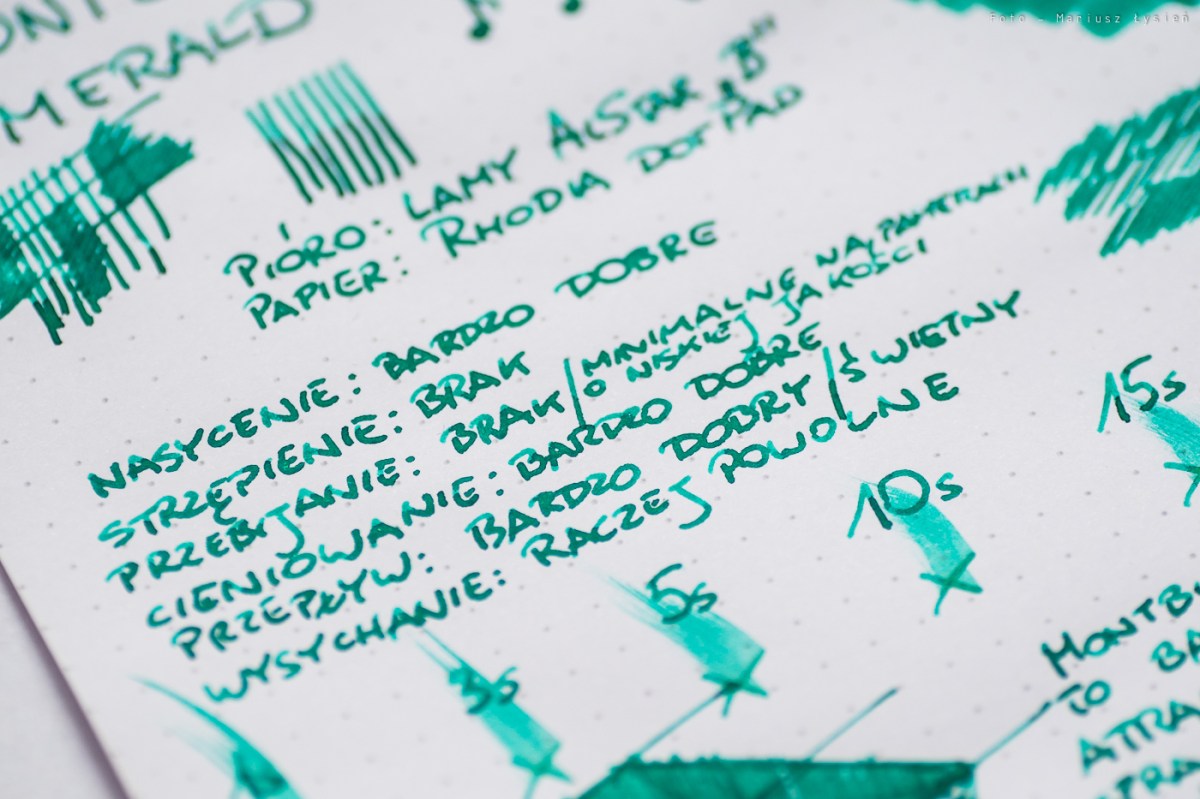 Foto - Mariusz Łysień
MERALD
PIÓRO: LAMY ALSTAR „B”
PAPIER: RHODIA DOT PAD
NASYCENIE: BARDZO DOBRE
STRZĘPIENIE: BRAK
PRZEBIJANIE: BRAK/MINIMALNE NA PAPIERACH
O NISKIEJ JAKOŚCI
CIENIOWANIE: BARDZO DOBRE
PRZEPŁYW: BARDZO DOBRY/ŚWIETNY
WYSYCHANIE: RACZEJ POWOLNE
3s
5s
10s
15s
MONTB
TO BA
ATRA